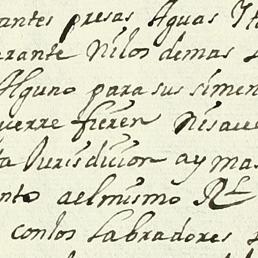 antes presas Aguas
erante Nilos demas
Alguno para sus simen
fieren
ta Jurisdicion ay mas
nto aelmismo Rl
con los Labradores